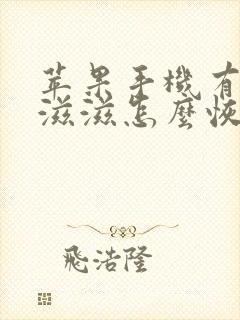 苹果手機有
滋滋怎麼恢
飛浩隆